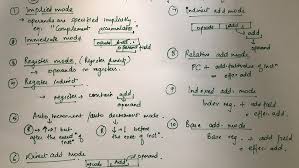 ① Implied mode
→ operands are specified implicitly
eg. Complement accumulator.
② Immediate mode
operand field
③ Register mode
→ operands in registers.
④ Register Indirect
→ register → contain add.
⑤ Auto Increment / Auto decrement mode
after the exec
before the exec
of inst
⑥ Direct add mode
operand.
⑦ Indirect add mode
⑧ Relative add mode
PC + add
= effec. add.
⑨ Indexed add. mode
Index reg. + add field
= effec. add.
⑩ Base add. mode
Base reg. + add field
= effec add